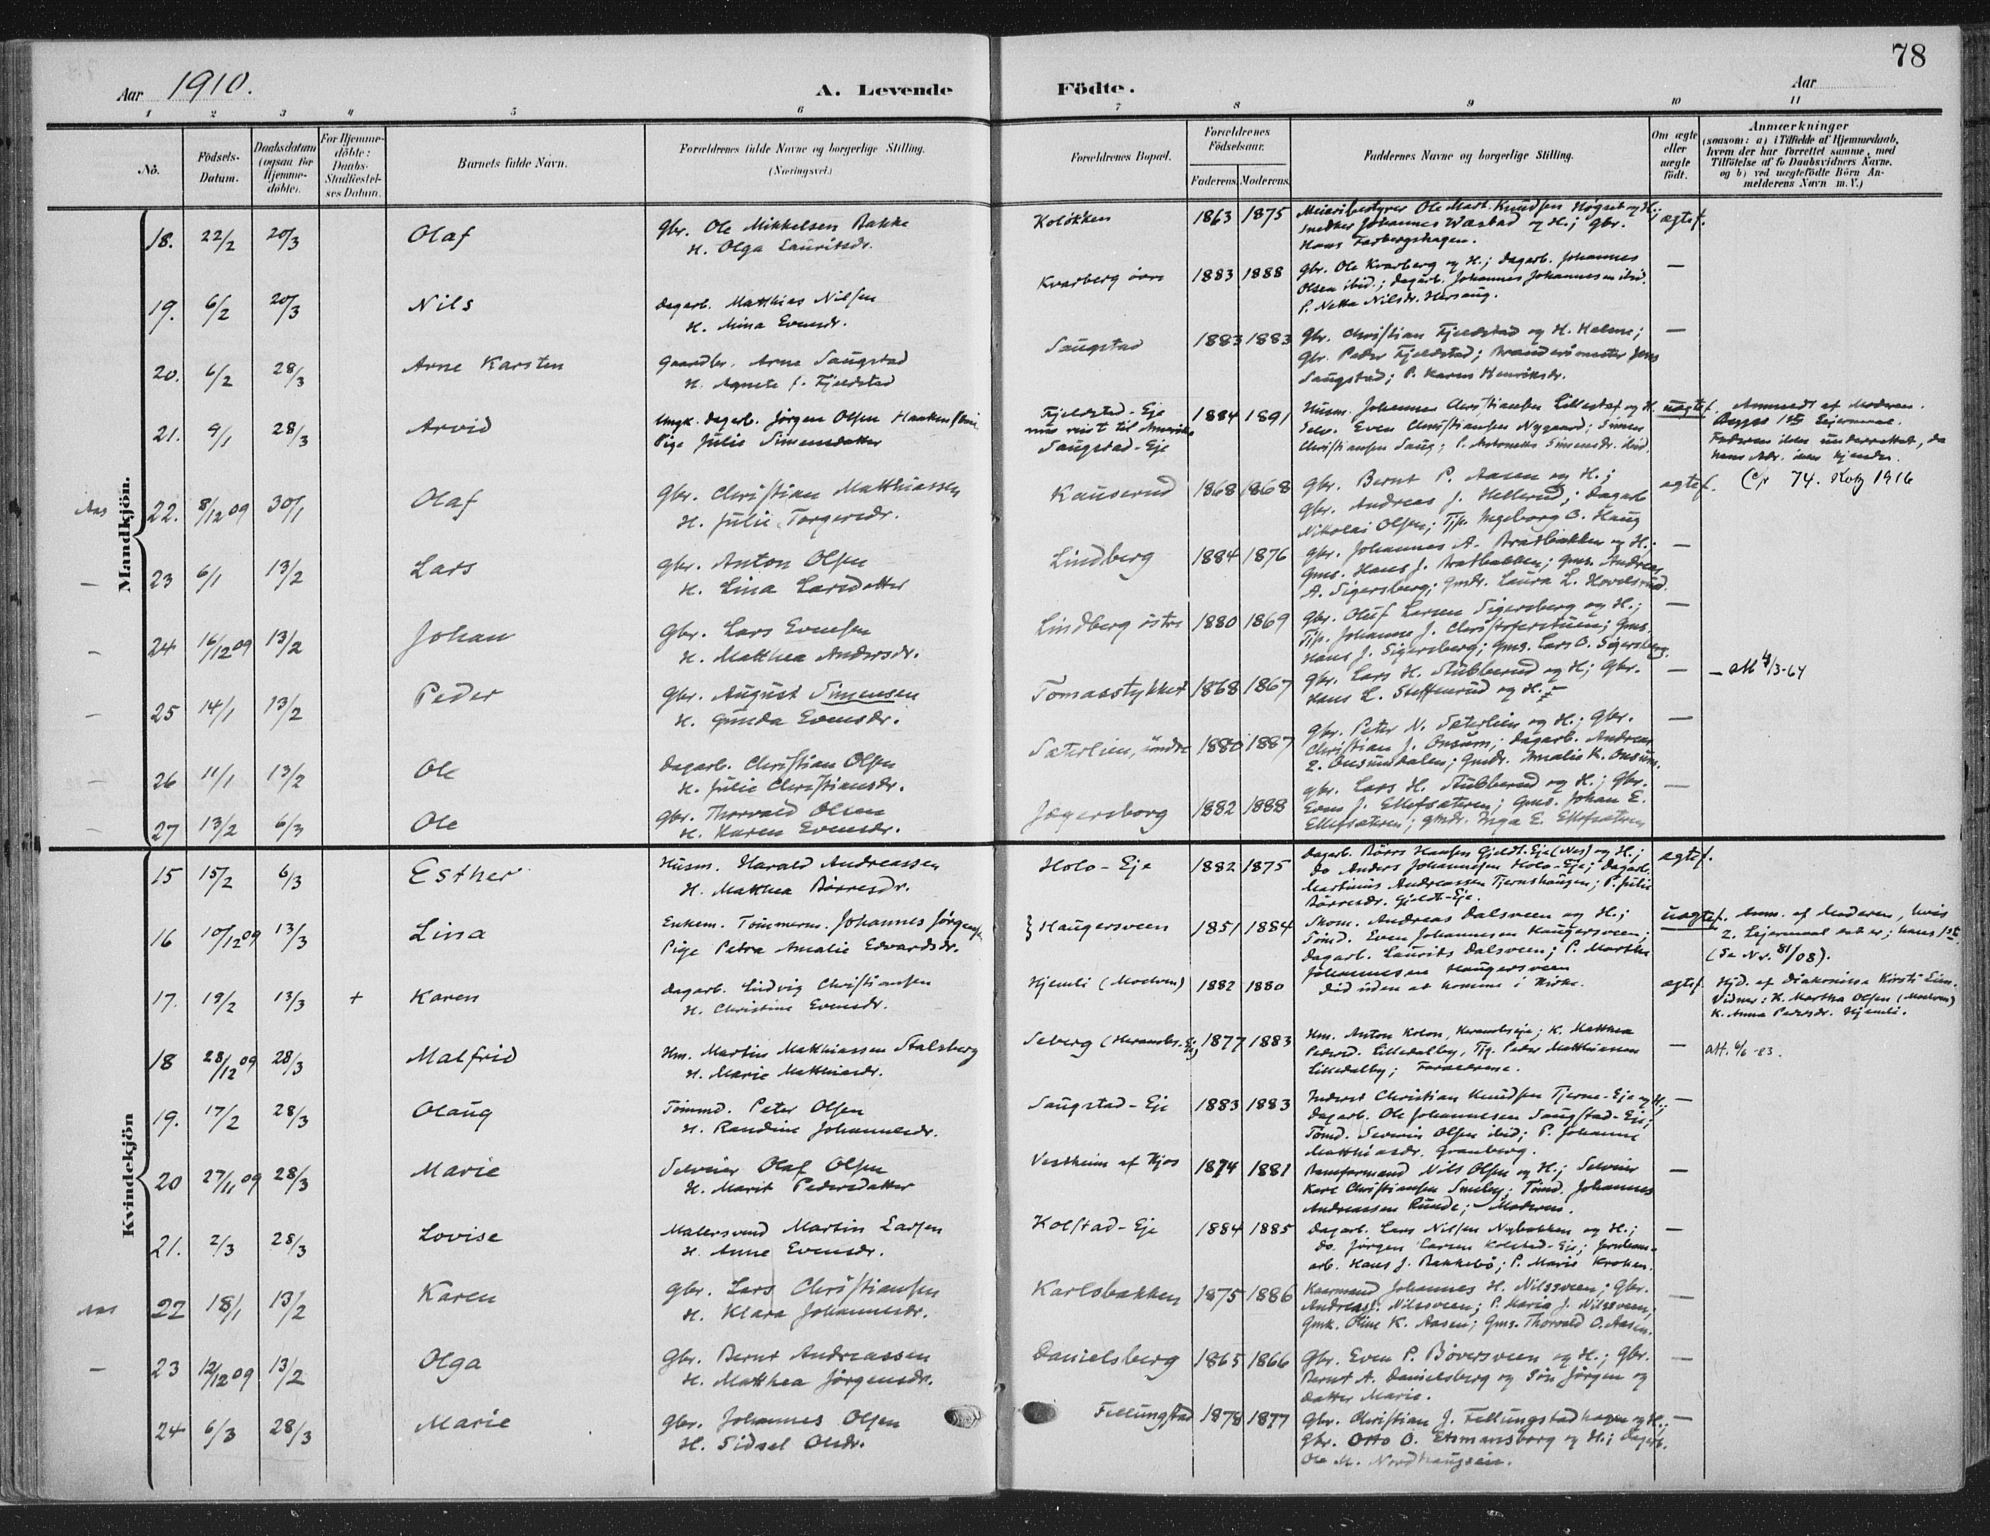 78
Aar 1910. A. Levende Födte. Aar
1 2 3 4 5 6 7 8 9 10 11
No. Födsels-Datum. Daabsdatum (ogsaa för Hjemmedöbte). For Hjemmedöbte: Daabs-Stadfæstelses Datum. Barnets fulde Navn. Forældrenes fulde Navne og borgerlige Stilling. (Næringsvei.) Forældrenes Bopæl. Forældrenes Födselsaar. Faderens. Moderens. Faddernes Navne og borgerlige Stilling. Om ægte eller uægte födt. Anmærkninger (saasom: a) i Tilfælde af Hjemmedaab, hvem der har forrettet samme, med Tilföielse af to Daabsvidners Navne, og b) ved uægtefödte Börn Anmelderens Navn m. V.)
Mandkjön.
18. 22/2 20/3 Olaf Gbr. Ole Mikkelsen Bakke Kolokken 1863 1875 Meieribestyrer Ole Mart. Knudsen Høgset og H.; ægtef.
H. Olga Lauritsdr. Snedker Johannes Wæstad og H.; Gbr.
Hans Farbergshagen.
19. 6/2 20/3 Nils Dagarb. Matthias Nilsen Kvarberg övre 1883 1888 Gbr. Ole Kvarberg og H.; Dagarb. Johannes —
H. Mina Evensdr. Olsen ibid.; Dagarb. Johannes Johannesen ibid.
P. Netta Nilsdr. Hersaug.
20. 6/2 28/3 Arne Karsten Gaardbr. Arne Saugstad Saugstad 1883 1883 Gbr. Christian Fjeldstad og H. Helene; —
H. Agnete f. Fjeldstad Gbr. Peder Fjeldstad; Jens
Saugstad; P. Karen Henriksdr.
21. 9/1 28/3 Arvid Ungk. Dagarb. Jörgen Olsen Fjeldstad-Eje 1884 1891 Husm. Johannes Christiansen og H. uægtef. Anmeldt af Moderen.
Pige Julie Simensdatter nu reist til Amerika Selv. Even Christiansen Nygaard; Simen Begges 1ste Leiermaal.
Saugstad-Eje Christiansen Saug; P. Antonette Simensdr. ibid. Faderen ikke underrettet, da
hans Adr. ikke kjendes.
Aas 22. 8/12 09 30/1 Olaf Gbr. Christian Matthiassen Kauserud 1868 1868 Gbr. Bernt P. Aasen og H.; ægtef. 74. 1916
H. Julie Torgersdr. Gbr. Andreas J. Hellerud; Dagarb.
Nikolai Olsen; Tjp. Ingeborg O. Haug
— 23 6/1 13/2 Lars Gbr. Anton Olsen Lindberg 1884 1876 Gbr. Johannes A. Bratbakken og H.; —
H. Lina Larsdatter Gms. Hans J. Bratbakken; Gms. Andreas
A. Sigersberg; Gmdr. Laura L. Hovelsrud.
— 24 16/12 09 13/2 Johan Gbr. Lars Evensen Lindberg östre 1880 1869 Gbr. Oluf Larsen Sigersberg og H.; —
H. Matthea Andersdr. Tjp. Johanne J. Christoferstuen; Gms.
Hans J. Sigersberg; Gms. Lars O. Sigersberg.
— 25 14/1 13/2 Peder Gbr. August Simensen Tomasstykket 1868 1867 Gbr. Lars H. Stubberud og H; Gbr. — — att 4/3-64
H. Gunda Evensdr. Hans L. Steffenrud og H.
— 26 11/1 13/2 Ole Dagarb. Christian Olsen Sæterlien, söndre 1880 1887 Gbr. Peter N. Sæterlien og H.; Gbr. —
H. Julie Christiansdr. Christian J. Onsum; Dagarb. Andreas
E. Onsumdalen; Gmdr. Amalie K. Onsum.
— 27 13/2 6/3 Ole Gbr. Thorvald Olsen Jægersborg 1882 1888 Gbr. Lars H. Stubberud og H.; Gbr. —
H. Karen Evensdr. Even J. Ellefsæteren; Gms. Johan E.
Ellefsæteren; Gmdr. Inga E. Ellefsæteren
Kvindekjön
15 15/2 6/3 Esther Husm. Harald Andreassen Holo-Eje 1882 1875 Dagarb. Börre Hansen Gjeldt.Eje (Nes) og H.; ægtef.
H. Matthea Börresdr. Do Anders Johannesen Holo-Eje; Dagarb.
Martinus Andreassen Tjernshaugen; P. Julie
Börresdr. Gjeldt-Eje.
16 10/12 09 13/3 Lina Enkem. Tömmerm. Johannes Jörgens. } Haugersveen 1851 1884 Skom. Andreas Dalsveen og H.; uægtef. Anm. af Moderen, hvis
Pige Petra Amalie Edvardsdr. Tömd. Even Johannesen Haugersveen; 2. Leiermaal det er; hans 1ste
Dagarb. Laurits Dalsveen; P. Marthe (Se No. 81/08).
Johannesen Haugersveen
17. 19/2 13/3 + Karen Dagarb. Ludvig Christiansen Hjemli (Moelven) 1882 1880 Död uden at komme i Kirke. ægtef. Hjd. af Diakonisse Kirsti Lien.
H. Christine Evensdr. Vidner: K. Martha Olsen (Moelven)
K. Anna Pedersdr. Hjemli.
18 28/12 09 28/3 Malfrid Hm. Martin Matthiassen Stalsberg Seberg 1877 1883 Hm. Anton Kolon, K. Matthea — Att. 4/6-83.
H. Marie Matthiasdr. Pedersd. Lilledalby, Tjg. Peder Matthiassen
Lilledalby; Forældrene.
19. 17/2 28/3 Olaug Tömmd. Peter Olsen Saugstad-Eje 1883 1883 Inderst Christian Knudsen Tjerne-Eje og H.; —
H. Randine Johannesdr. Dagarb. Ole Johannesen Saugstad-Eje;
Tömd. Severin Olsen ibid; P. Johanne
Matthiasdr. Granberg.
20 27/11 09 28/3 Marie Selveier Olaf Olsen Vestheim af Hjos 1874 1881 Nils Olsen og H.; Selveier —
H. Marit Pedersdatter Karl Christiansen Smeby; Tömd. Johannes
Andreassen Runde; Moderen.
21. 2/3 28/3 Lovise Malersvend Martin Larsen Kolstad-Eje 1884 1885 Dagarb. Lars Nilsen Nybakken og H.; —
H. Anne Evensdr. Do. Jörgen Larsen Kolstad-Eje; Jernbane-
arb. Hans J. Bakkebö; P. Marie Kroken.
Aas 22 18/1 13/2 Karen Gbr. Lars Christiansen Karlsbakken 1875 1886 Kaarmand Johannes H. Nilssveen; Gbr. —
H. Klara Johannesdr. Andreas J. Nilssveen; P. Maria J. Nilssveen;
Gmk. Oline K. Aasen; Gms. Thorvald O. Aasen.
— 23 12/12 09 13/2 Olga Gbr. Bernt Andreassen Danielsberg 1865 1866 Gbr. Even P. Böversveen og H.; Gbr. —
H. Matthea Jörgensdr. Bernt A. Danielsberg og Sön Jörgen og
Datter Marie.
24 6/3 28/3 Marie Gbr. Johannes Olsen Fellungstad 1878 1877 Gbr. Christian J. Fellungstadhagen og H.; —
H. Sidsel Olsdr. Gbr. Otto O. Etsmansborg og H.; Dagarb.
Ole M. Nordhaugsén.